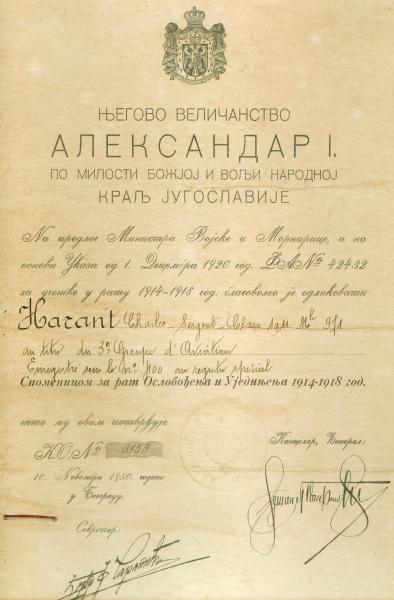 ЊЕГОВО ВЕЛИЧАНСТВО
АЛЕКСАНДАР I.
ПО МИЛОСТИ БОЖЈОЈ И ВОЉИ НАРОДНОЈ
КРАЉ ЈУГОСЛАВИЈЕ
На предлог Министра Војске и Морнарице, а на
основи Указа од 1. Децембра 1920 год. ЂА№ 42432
за учешће у рату 1914-1918 год. благоволео је одликовати
Harant Charles - Sergent - Classe 1911 Mle 971
au titre du 3e Groupe d'Aviation
Enregistré sous le No 100 au registre spécial
Споменицом за рат Ослобођења и Уједињења 1914-1918 год.
што му овим потврђује
К.О. №
10. Новембра 1930. године
у Београду.
Канцелар, Ђенерал:
Секретар: